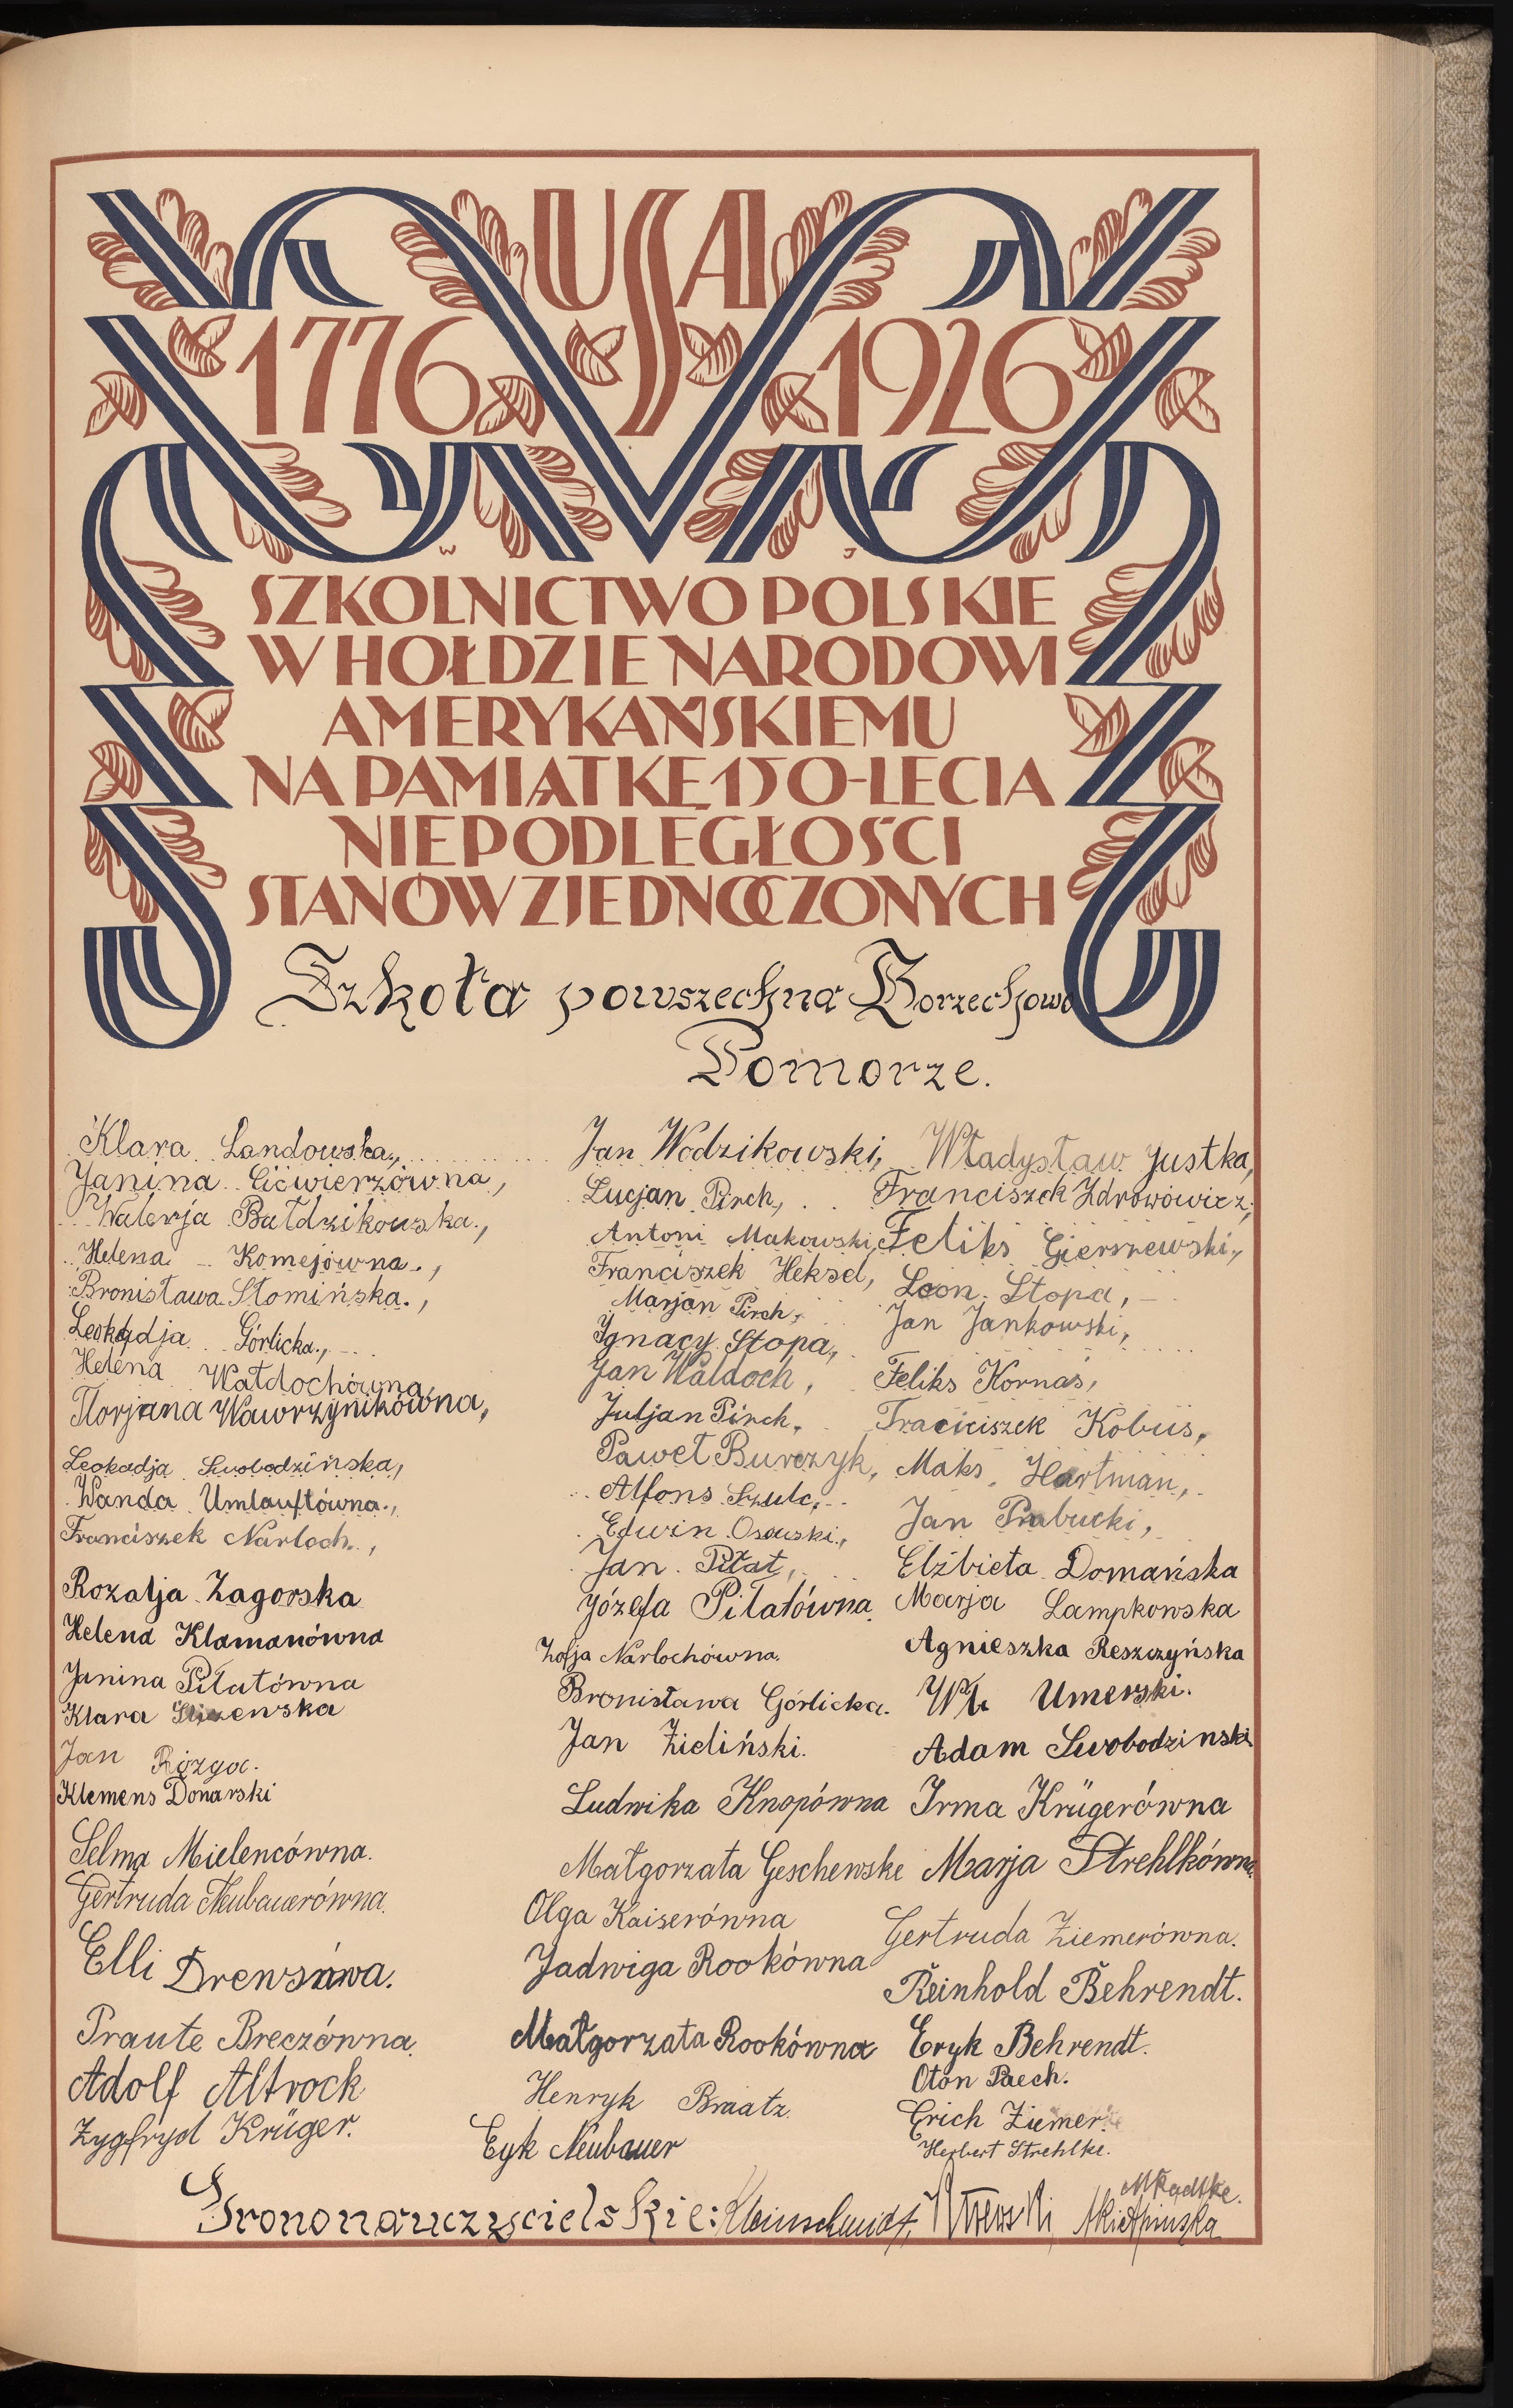 USA
1776 1926
W J
SZKOLNICTWO POLSKIE
W HOŁDZIE NARODOWI
AMERYKAŃSKIEMU
NA PAMIĄTKĘ 150-LECIA
NIEPODLEGŁOŚCI
STANÓW ZJEDNOCZONYCH
Szkoła powszechna Borzechowo
Pomorze.
Klara Landowska,
Janina Ećwierzówna,
Walerja Bałdzikowska,
Helena Komejówna,
Bronisława Słomińska,
Leokadja Górlicka,
Helena Wałdochówna,
Florjana Wawrzynikówna,
Leokadja Swobodzińska,
Wanda Umlauftówna,
Franciszek Narloch,
Rozalja Zagorska
Helena Klamanówna
Janina Piłatówna
Klara
Jan Rózga.
Klemens Donarski
Selma Mielencówna.
Gertruda Neubauerówna.
Elli
Traute Breczówna.
Adolf Altrock
Zygfryd Krüger.
Jan Wodzikowski,
Lucjan Pirch,
Antoni Makowski,
Franciszek Heksel,
Marjan Pirch,
Ignacy Stopa,
Jan Wałdoch,
Juljan Pirch,
Paweł Burczyk,
Alfons Szulc,
Edwin Osowski,
Jan Piłat,
Józefa Piłatówna
Zofja Narlochówna.
Bronisława Górlicka.
Jan Zieliński.
Ludwika Knopówna
Małgorzata Geschenske
Olga Kaiserówna
Jadwiga Rookówna
Małgorzata Rookówna
Henryk Braatz.
Eyk Neubauer
Władysław Justka,
Franciszek Zdrowowicz,
Feliks Gierszewski,
Leon Stopa,
Jan Jankowski,
Feliks Kornas,
Franciszek Kobus,
Maks Hartman,
Jan Prabucki,
Elżbieta Domańska
Marja Lampkowska
Agnieszka Reszczyńska
Wł. Umerski.
Adam Swobodzinski
Irma Krügerówna
Marja Strehlkówna
Gertruda Ziemerówna.
Reinhold Behrendt.
Eryk Behrendt.
Oton Paech.
Erich Ziemer.
Herbert Strehlke.
MRadtke.
Grono nauczycielskie: Kleinschmidt,